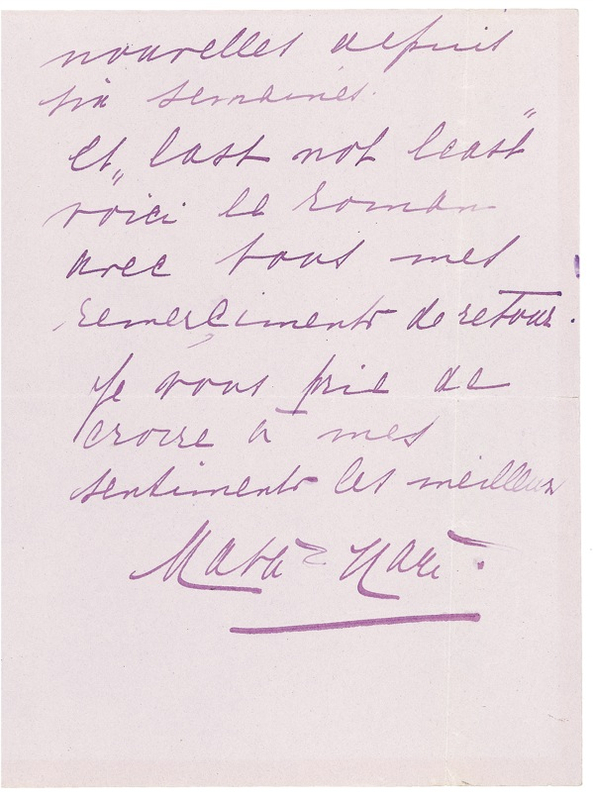 nouvelles depuis
six semaines.
et „last not least"
voici le roman
avec tous mes
remerciments de retour.
Je vous prie de
croire à mes
sentiments les meilleurs
Mata-Hari.